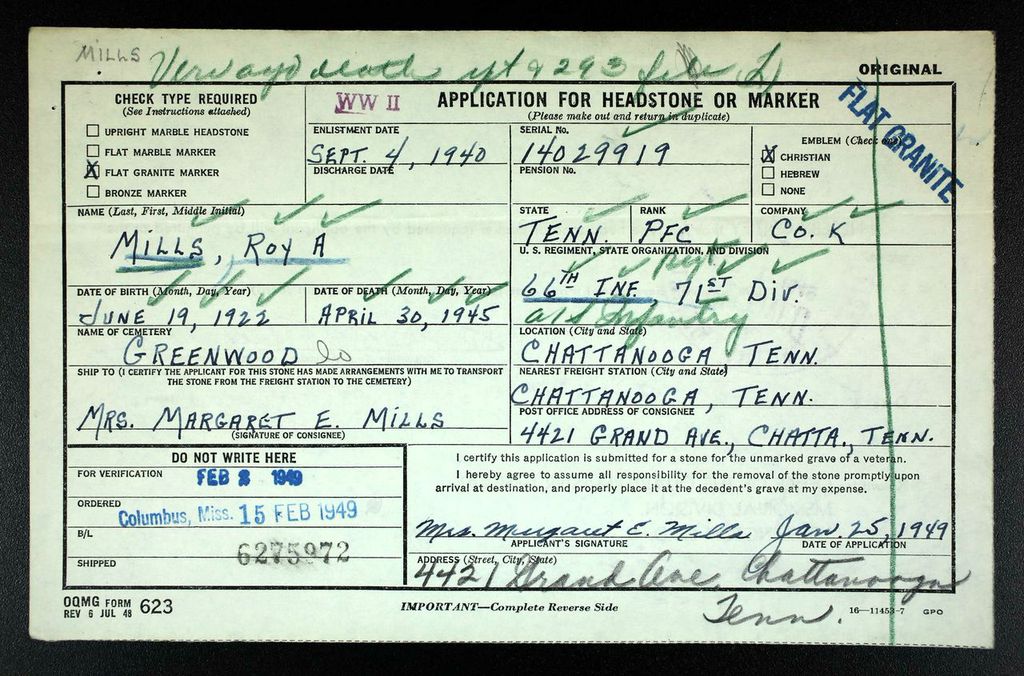 MILLS
death 9293
ORIGINAL
CHECK TYPE REQUIRED
(See Instructions attached)
UPRIGHT MARBLE HEADSTONE
FLAT MARBLE MARKER
X FLAT GRANITE MARKER
BRONZE MARKER
WW II
APPLICATION FOR HEADSTONE OR MARKER
(Please make out and return in duplicate)
FLAT GRANITE
ENLISTMENT DATE
SEPT. 4, 1940
DISCHARGE DATE
SERIAL No.
14029919
PENSION No.
EMBLEM (Check one)
X CHRISTIAN
HEBREW
NONE
NAME (Last, First, Middle Initial)
MILLS, ROY A
STATE
TENN.
RANK
PFC
COMPANY
CO. K
U. S. REGIMENT, STATE ORGANIZATION, AND DIVISION
66TH INF. 71ST DIV.
Infantry
DATE OF BIRTH (Month, Day, Year)
JUNE 19, 1922
DATE OF DEATH (Month, Day, Year)
APRIL 30, 1945
NAME OF CEMETERY
GREENWOOD
LOCATION (City and State)
CHATTANOOGA TENN.
SHIP TO (I CERTIFY THE APPLICANT FOR THIS STONE HAS MADE ARRANGEMENTS WITH ME TO TRANSPORT
THE STONE FROM THE FREIGHT STATION TO THE CEMETERY)
MRS. MARGARET E. MILLS
(SIGNATURE OF CONSIGNEE)
NEAREST FREIGHT STATION (City and State)
CHATTANOOGA, TENN.
POST OFFICE ADDRESS OF CONSIGNEE
4421 GRAND AVE., CHATTA., TENN.
DO NOT WRITE HERE
FOR VERIFICATION
FEB 2 1949
ORDERED
Columbus, Miss. 15 FEB 1949
B/L
6275972
SHIPPED
I certify this application is submitted for a stone for the unmarked grave of a veteran.
I hereby agree to assume all responsibility for the removal of the stone promptly upon
arrival at destination, and properly place it at the decedent's grave at my expense.
Mrs. Margaret E. Mills Jan. 25, 1949
APPLICANT'S SIGNATURE
DATE OF APPLICATION
ADDRESS (Street, City, State)
4421 Grand Ave, Chattanooga
Tenn.
OQMG FORM 623
REV 6 JUL 48
IMPORTANT—Complete Reverse Side
16—11453-7 GPO